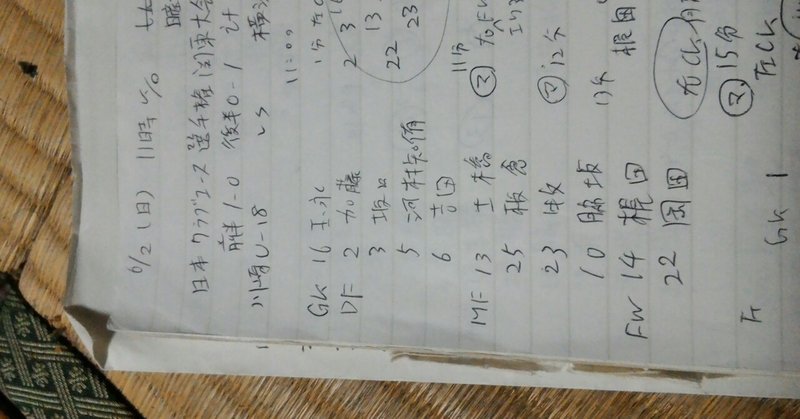 6/2(日) 11時 K/O
日本クラブユース選手権 関東大会
前半1-0 後半0-1 計
川崎U-18 VS 横浜
11:00
GK 16 玉永
DF 2 加藤
3 坂口
5 河村知侑
6 吉田
MF 13 土橋
25 板倉
23 牧
10 脇坂
FW 14 梶田
22 岡田
2
3
13
22 23
11分
②
② 12分
13分
梶田
右CK
② 15分
左CK
GK 1